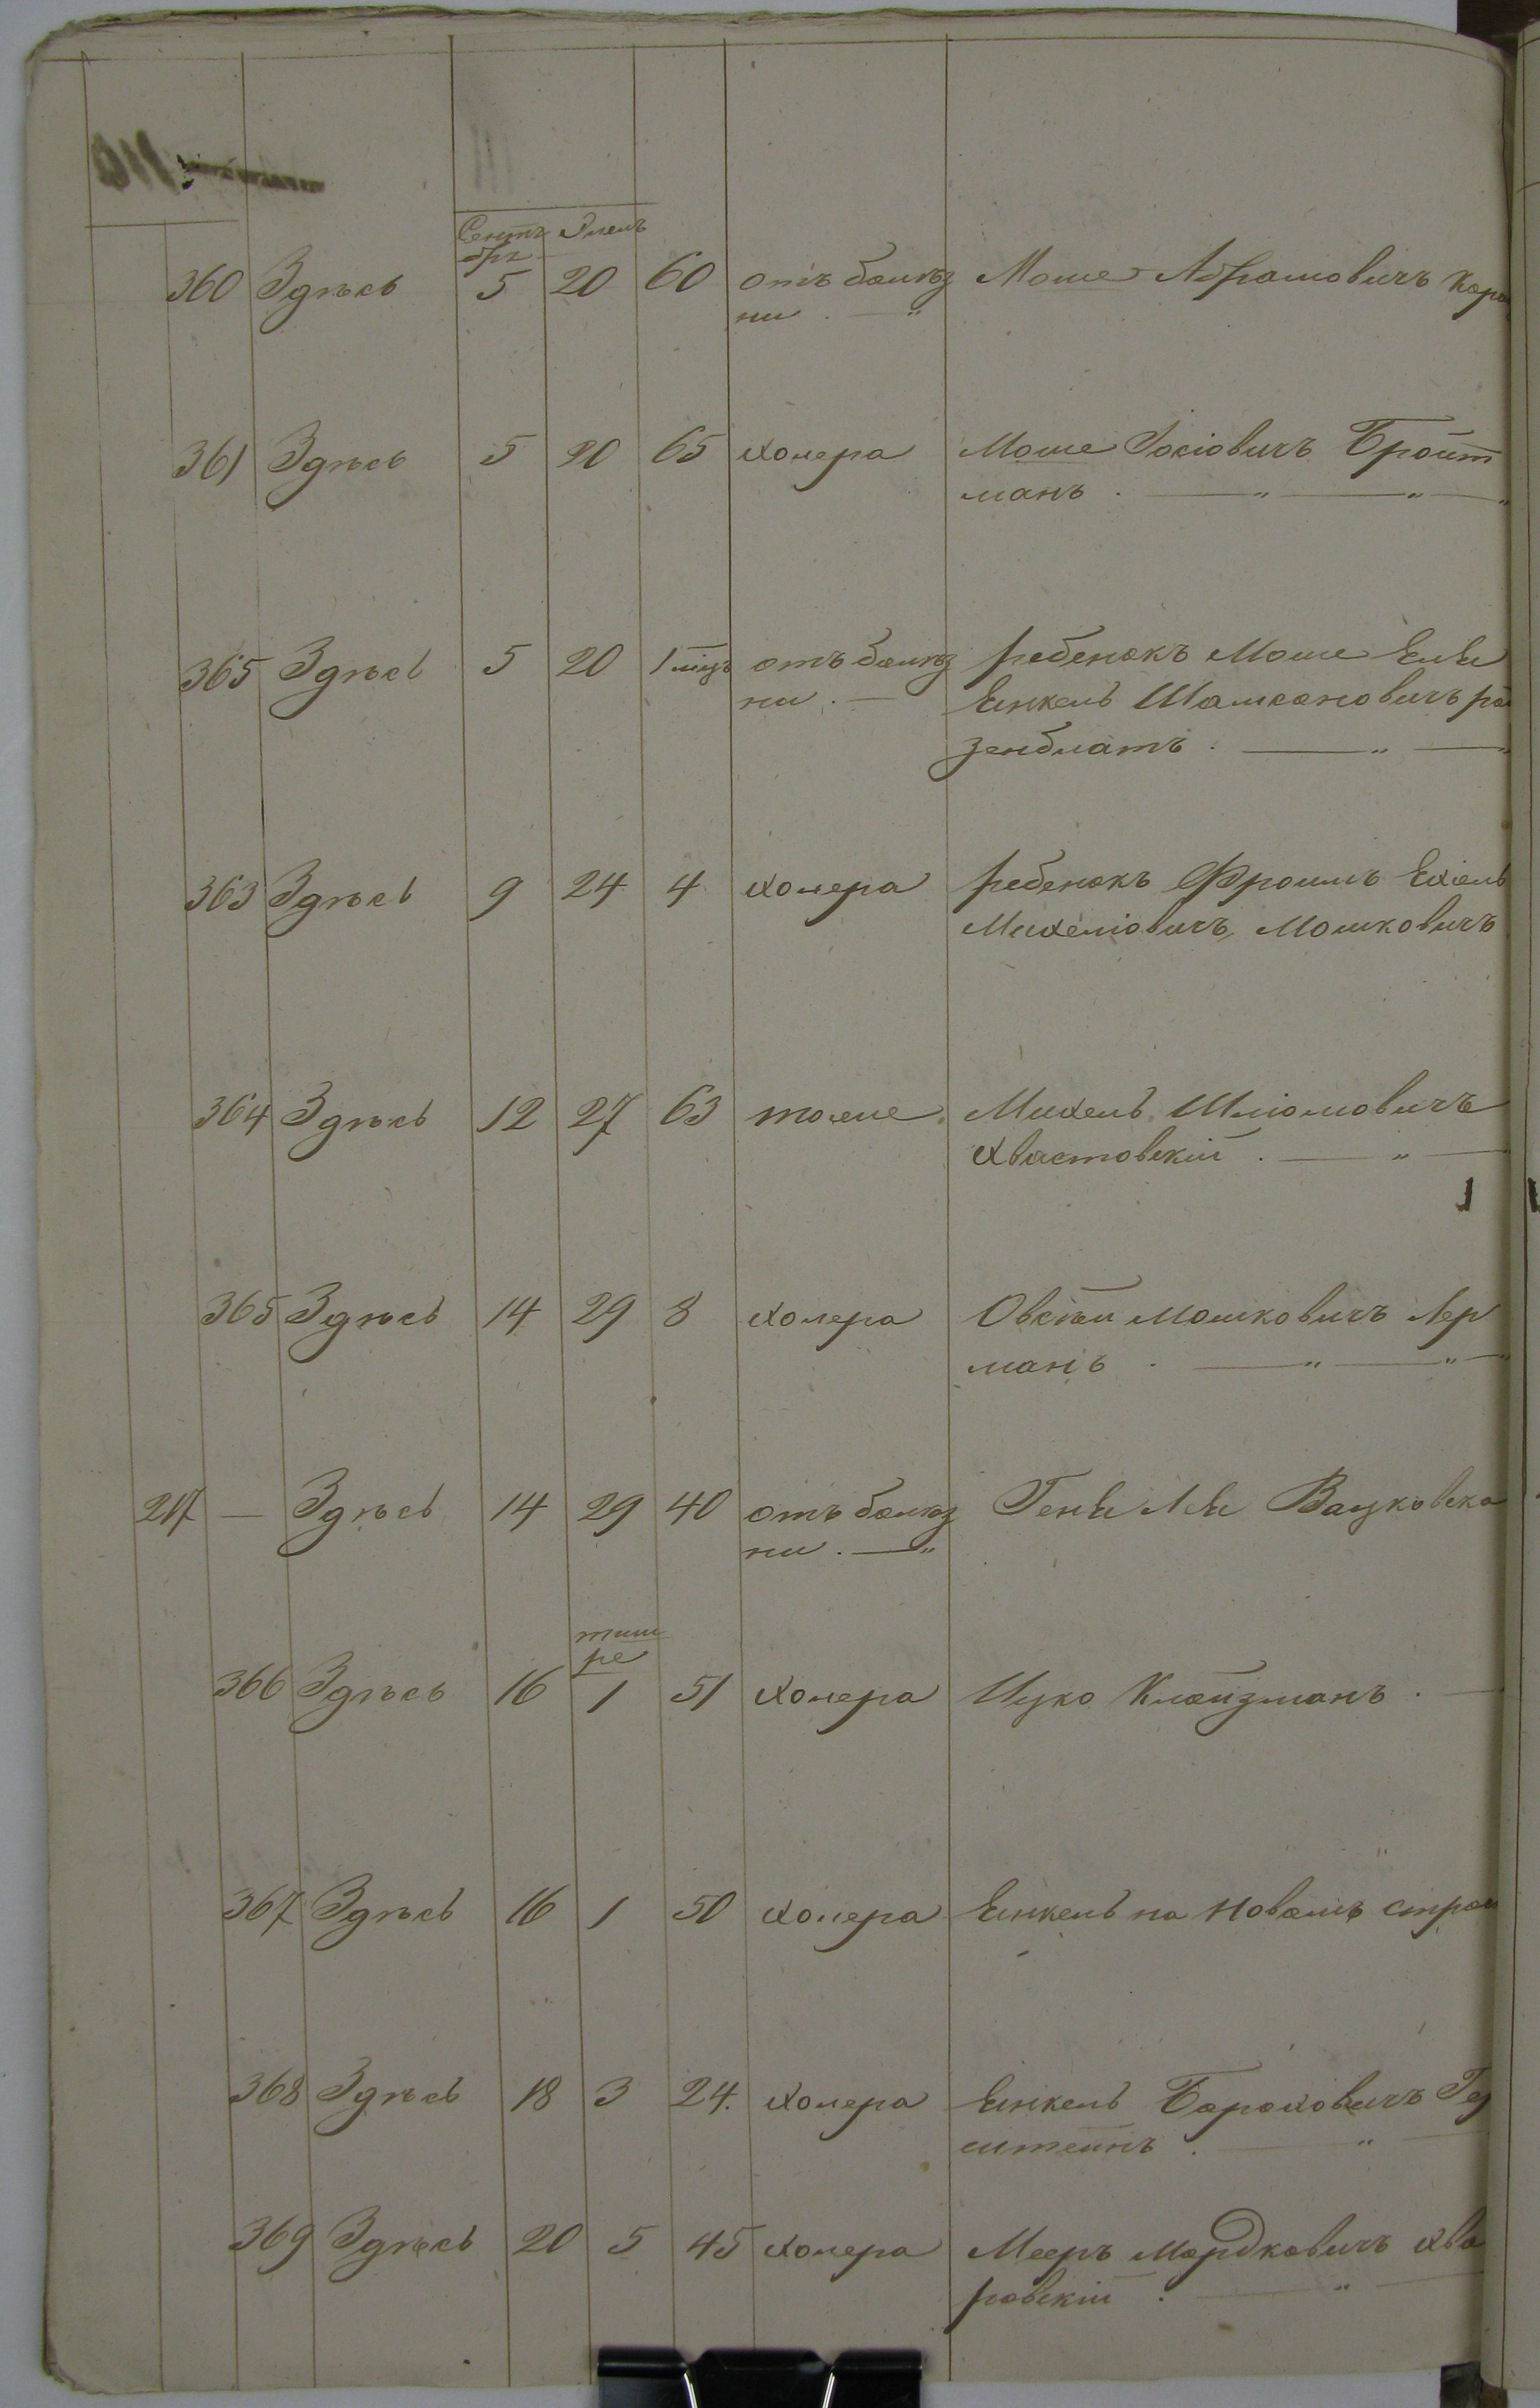 Сентя Элель
бря
360 Здѣсь 5 20 60 отъ болѣз Моше Абрамовичъ Кор
ни . — "
361 Здѣсь 5 20 65 холера Моше Іосіовичъ Бройт
манъ . — " — " — "
365 Здѣсь 5 20 1 мцъ отъ болѣз ребенокъ Моше Ели
ни . — Еинкель Шамсоновичъ ро
зенблатъ . — " —
363 Здѣсь 9 24 4 холера ребенокъ Фроимъ Ехіель
Михеліовичъ Мошковичъ
364 Здѣсь 12 27 63 тоже Михель Шліомовичъ
Хвастовскій . — " —
365 Здѣсь 14 29 8 холера Овсѣй Мошковичъ Лер
манъ . — " — " —
217 — Здѣсь 14 29 40 отъ болѣз Геня Лея Вацковска
ни . — "
тиш
ре
366 Здѣсь 16 1 51 холера Ицко Клейзманъ . —
367 Здѣсь 16 1 50 холера Еинкель на новомъ строи
368 Здѣсь 18 3 24. холера Еинкель Бороховичъ Гед
штейнъ . — " —
369 Здѣсь 20 5 45 холера Мееръ Мордковичъ Хва
ровскій . — " —